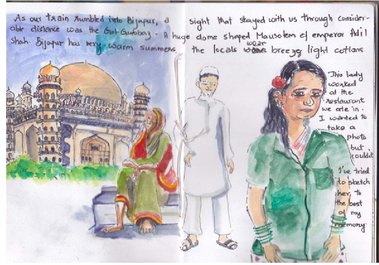 As our train rumbled into Bijapur, a sight that stayed with us through consider-
able distance was the Gol-Gumbaz. A huge dome shaped Mausoleum of emperor Adil
Shah. Bijapur has very warm summers, the locals wear breezy light cottons
This lady
worked
at the
restaurant
we ate in.
I wanted
to take
a
photo
but
couldn't
I've
tried
to sketch
her, to
the best
of my
memory